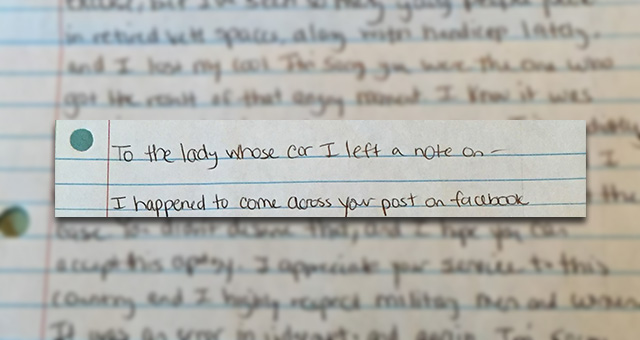 but I've seen so many young people park
in retired vets spaces, along with handicap lately.
and I lost my cool. I'm sorry you were the one who
got the result of that angry moment. I know it was
To the lady whose car I left a note on -
I happened to come across your post on facebook
You didn't deserve that, and I hope you can
accept this apology. I appreciate your service to this
country and I highly respect military men and women
It was an error in judgment, and again, I'm